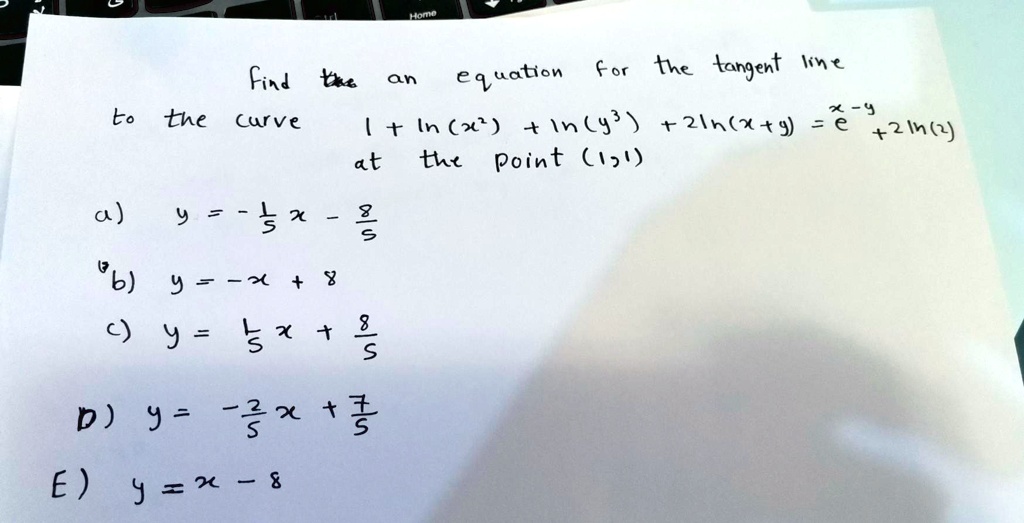 Home
find an equation for the tangent line
to the curve 1 + ln(x²) + ln(y³) + 2ln(x+y) = e^(x-y) + 2ln(2)
at the point (1,1)
a) y = - 1/5 x - 8/5
b) y = -x + 8
c) y = 1/5 x + 8/5
D) y = - 2/5 x + 7/5
E) y = x - 8